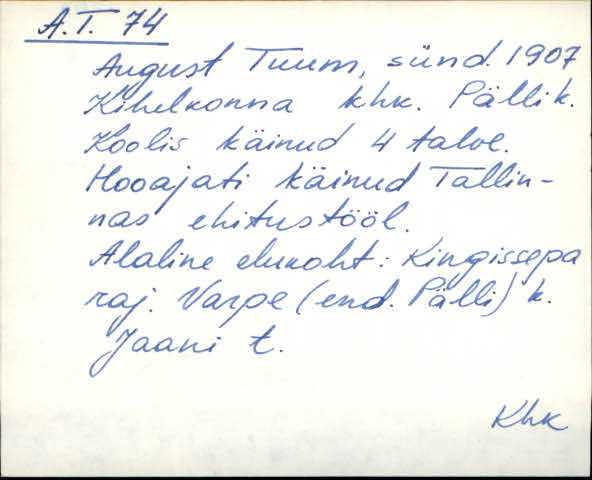 A.T. 74
August Tuum, sünd. 1907
Kihelkonna khk. Pälli k.
Koolis käinud 4 talve.
Hooajati käinud Tallin-
nas ehitustööl.
Alaline elukoht: Kingissepa
raj. Varpe (end. Pälli) k.
Jaani t.
Khk